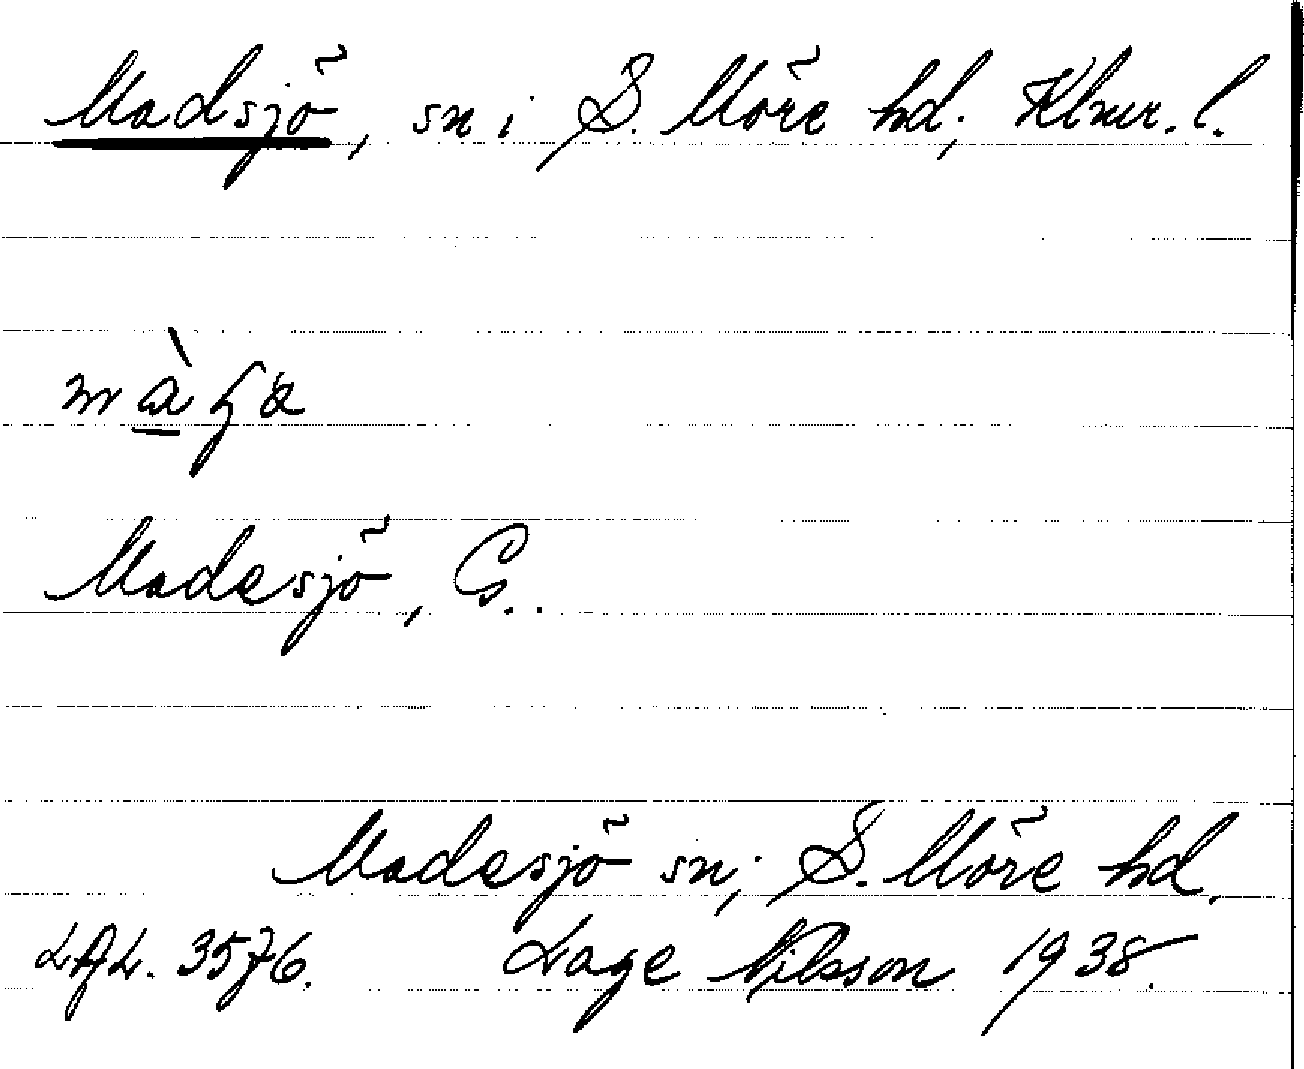 Madsjö, sn i S. Möre hd; Klmr. l.
màɧa
Madesjö, G..
Madesjö sn; S. Möre hd.
LAL. 3576. Lage Nilsson 1938.